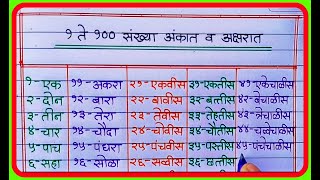 १ ते १०० संख्या अंकात व अक्षरात
१- एक ११- अकरा २१- एकवीस ३१- एकतीस ४१- एकेचाळीस
२- दोन १२- बारा २२- बावीस ३२- बत्तीस ४२- बेचाळीस
३- तीन १३- तेरा २३- तेवीस ३३- तेहतीस ४३- त्रेचाळीस
४- चार १४- चौदा २४- चोवीस ३४- चौतीस ४४- चव्वेचाळीस
५- पाच १५- पंधरा २५- पंचवीस ३५- पस्तीस ४५- पंचेचाळीस
६- सहा १६- सोळा २६- सव्वीस ३६- छत्तीस